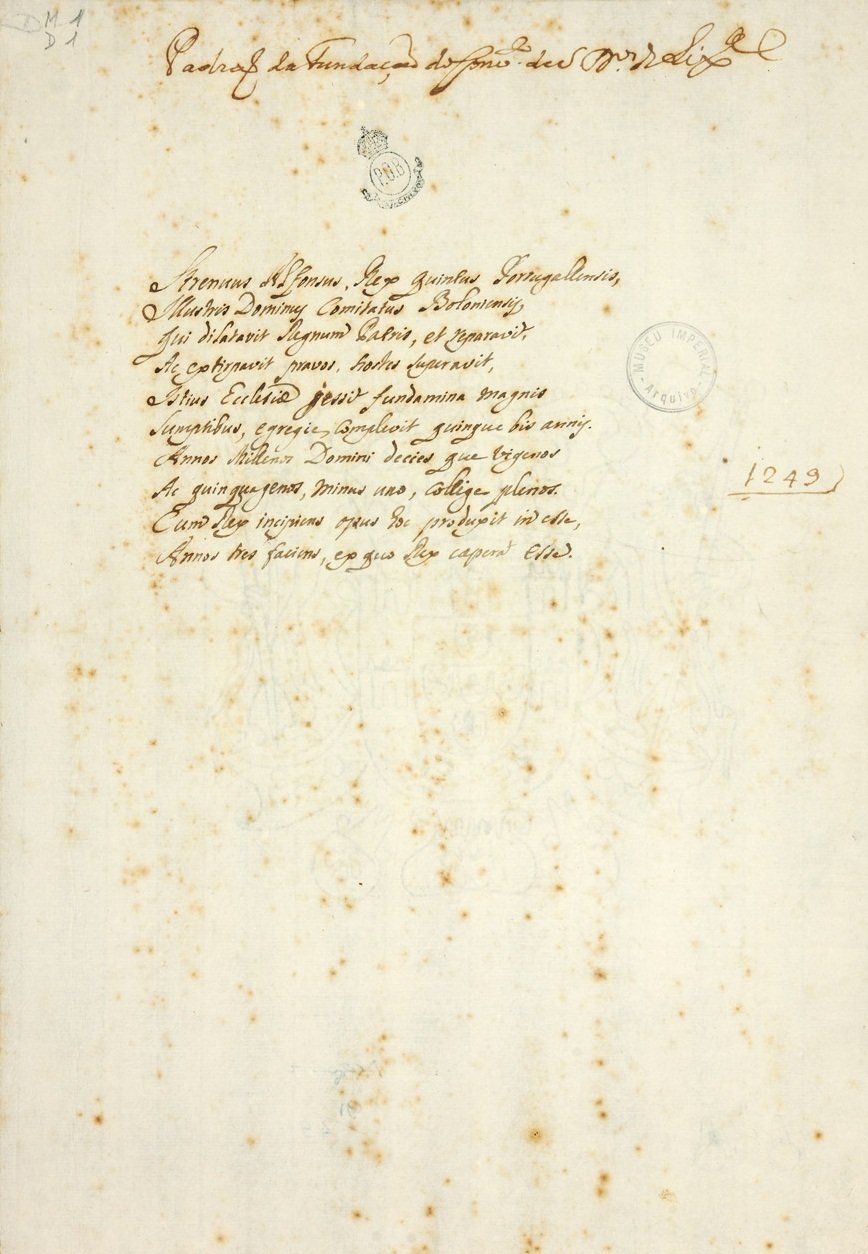 M 1
D 1
Padraõ da Fundaçaõ do Conv.to de S. D.os de Lix.a
P.O.B
MUSEU IMPERIAL
- Arquivo -
Strenuus Alfonsus, Rex quintus Portugallensis,
Illustris Dominus Comitatus Boloniensis,
Qui dilatavit Regnum Patris, et reparavit,
Ac extirpavit pravos, hostes superavit,
Istius Ecclesiæ jessit fundamina magnis
Sumptibus, egregie complevit quinque bis annis.
Annos Millenos Domini decies que vigenos
Ac quinquagenos, minus uno, collige plenos.
1249
Eum Rex incipiens opus hoc produxit in esse,
Annos tres faciens, ex quo Rex cæperat esse.